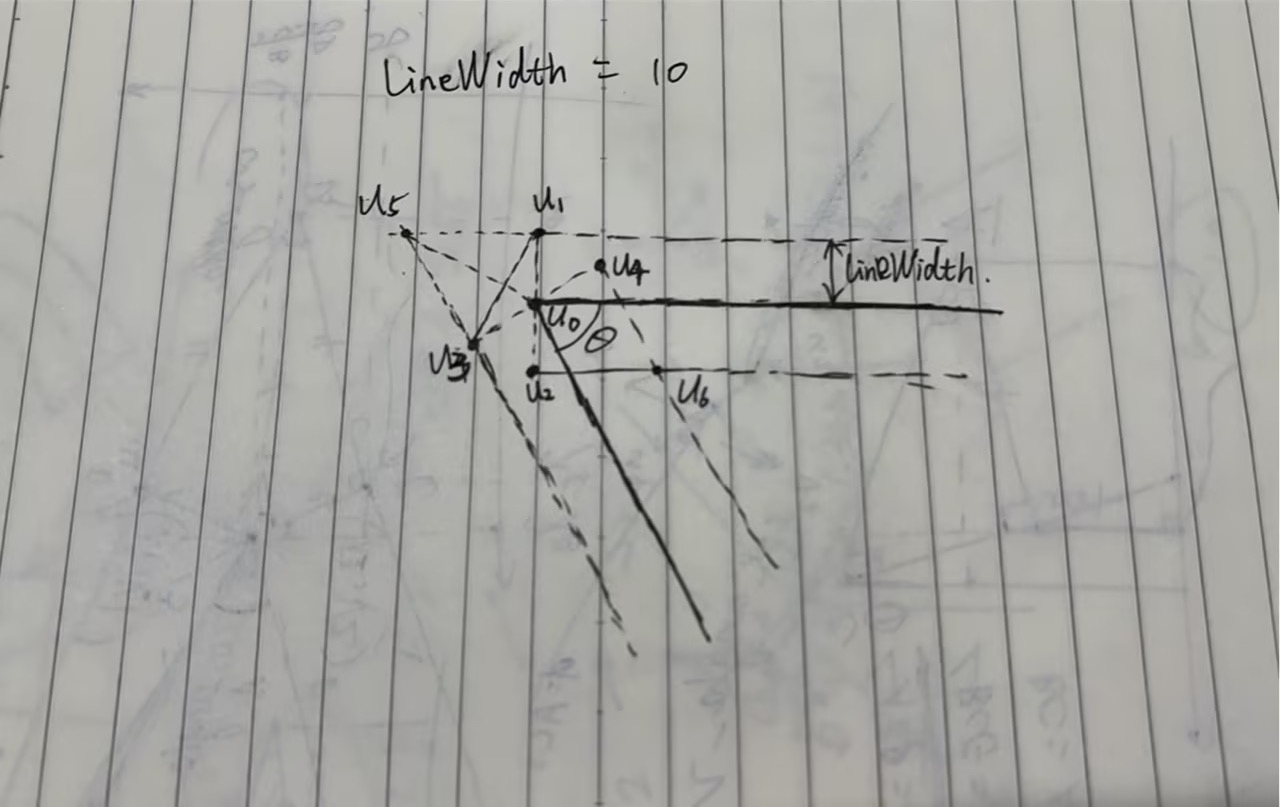 LineWidth = 10
U5
U1
U4
LineWidth.
U0
θ
U3
U2
U6